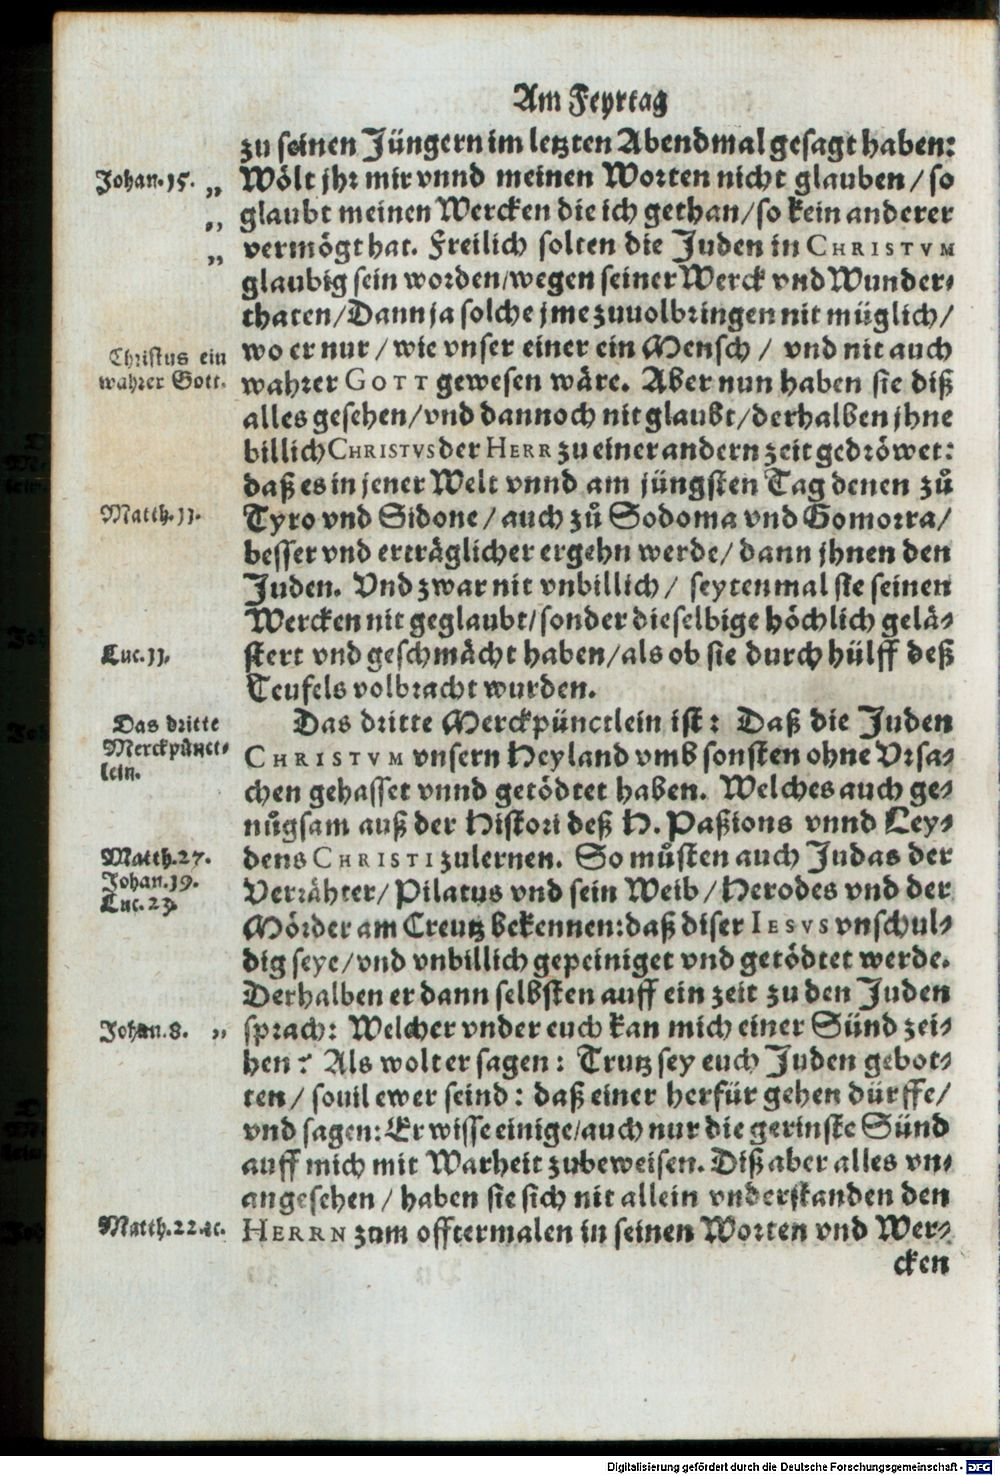 Am Feyrtag
zu seinen Jüngern im letzten Abendmal gesagt haben:
Johan. 15. „ Wölt jhr mir vnnd meinen Worten nicht glauben / so
„ glaubt meinen Wercken die ich gethan / so kein anderer
„ vermögt hat. Freilich solten die Juden in CHRISTVM
glaubig sein worden / wegen seiner Werck vnd Wunder⸗
thaten / Dann ja solche jme zuuolbringen nit müglich /
Christus ein wo er nur / wie vnser einer ein Mensch / vnd nit auch
wahrer Gott. wahrer GOTT gewesen wäre. Aber nun haben sie diß
alles gesehen / vnd dannoch nit glaubt / derhalben jhne
billich CHRISTVS der HERR zu einer andern zeit gedröwet:
daß es in jener Welt vnnd am jüngsten Tag denen zů
Matth. 11. Tyro vnd Sidone / auch zů Sodoma vnd Gomorra /
besser vnd erträglicher ergehn werde / dann jhnen den
Juden. Vnd zwar nit vnbillich / seytenmal sie seinen
Wercken nit geglaubt / sonder dieselbige höchlich gelä⸗
Luc. 11. stert vnd geschmächt haben / als ob sie durch hülff deß
Teufels volbracht wurden.
Das dritte Das dritte Merckpünctlein ist: Daß die Juden
Merckpünct⸗ CHRISTVM vnsern Heyland vmb sonsten ohne Vrsa⸗
lein. chen gehasset vnnd getödtet haben. Welches auch ge⸗
nůgsam auß der Histori deß H. Paßions vnnd Ley⸗
Matth. 27. dens CHRISTI zulernen. So můsten auch Judas der
Johan. 19. Verrähter / Pilatus vnd sein Weib / Herodes vnd der
Luc. 23. Mörder am Creutz bekennen: daß diser IESVS vnschul⸗
dig seye / vnd vnbillich gepeiniget vnd getödtet werde.
Derhalben er dann selbsten auff ein zeit zu den Juden
Johan. 8. „ sprach: Welcher vnder euch kan mich einer Sünd zei⸗
hen? Als wolt er sagen: Trutz sey euch Juden gebot⸗
ten / souil ewer seind: daß einer herfür gehen dürffe /
vnd sagen: Er wisse einige / auch nur die gerinste Sünd
auff mich mit Warheit zubeweisen. Diß aber alles vn⸗
angesehen / haben sie sich nit allein vnderstanden den
Matth. 22. ꝛc. HERRN zum offtermalen in seinen Worten vnd Wer⸗
cken
Digitalisierung gefördert durch die Deutsche Forschungsgemeinschaft - DFG